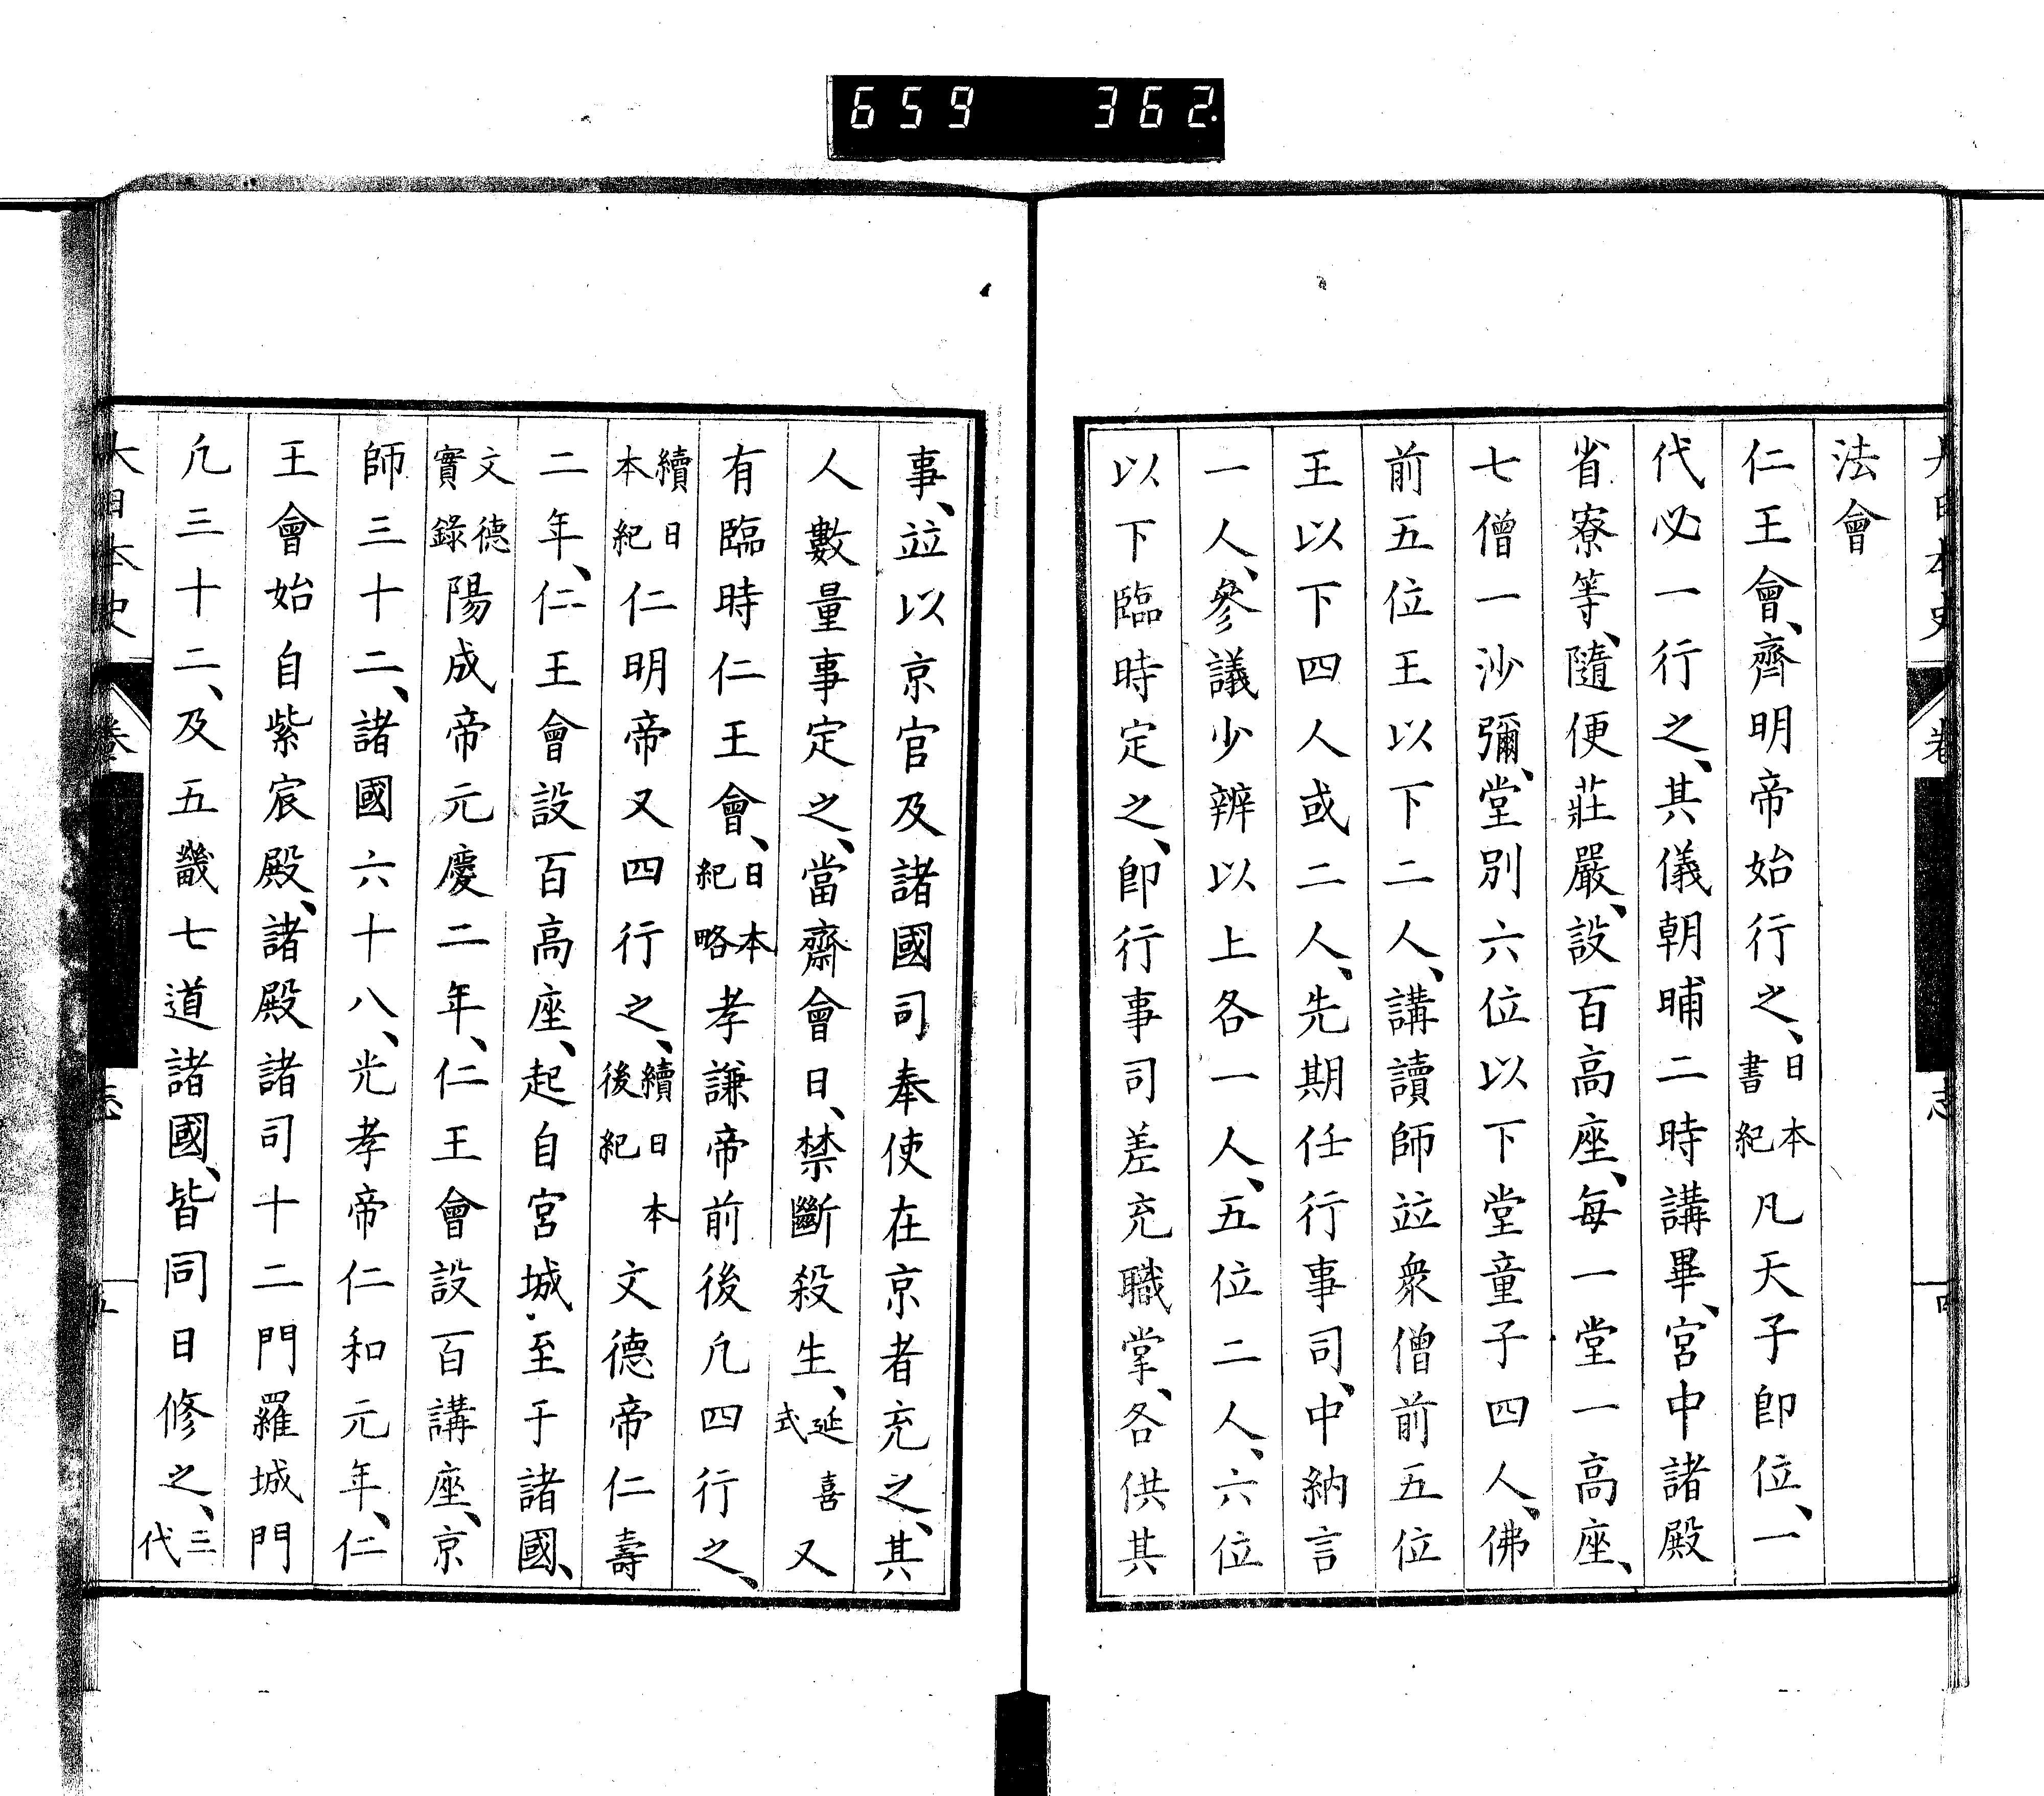 659 362.
大日本史 卷 志 四
法會
仁王會、齊明帝始行之、日本書紀 凡天子卽位、一
代必一行之、其儀朝晡二時講畢、宮中諸殿
省寮等、隨便莊嚴、設百高座、每一堂一高座、
七僧一沙彌、堂別六位以下堂童子四人、佛
前五位王以下二人、講讀師竝衆僧前五位
王以下四人或二人、先期任行事司、中納言
一人、參議少辨以上各一人、五位二人、六位
以下臨時定之、卽行事司差充職掌、各供其
事、竝以京官及諸國司奉使在京者充之、其
人數量事定之、當齋會日、禁斷殺生、延喜式 又
有臨時仁王會、日本紀略 孝謙帝前後凢四行之、
續日本紀 仁明帝又四行之、續日本後紀 文德帝仁壽
二年、仁王會設百高座、起自宮城、至于諸國、
文德實錄 陽成帝元慶二年、仁王會設百講座、京
師三十二、諸國六十八、光孝帝仁和元年、仁
王會始自紫宸殿、諸殿諸司十二門羅城門
凢三十二、及五畿七道諸國、皆同日修之、三代
大日本史 卷 志 五